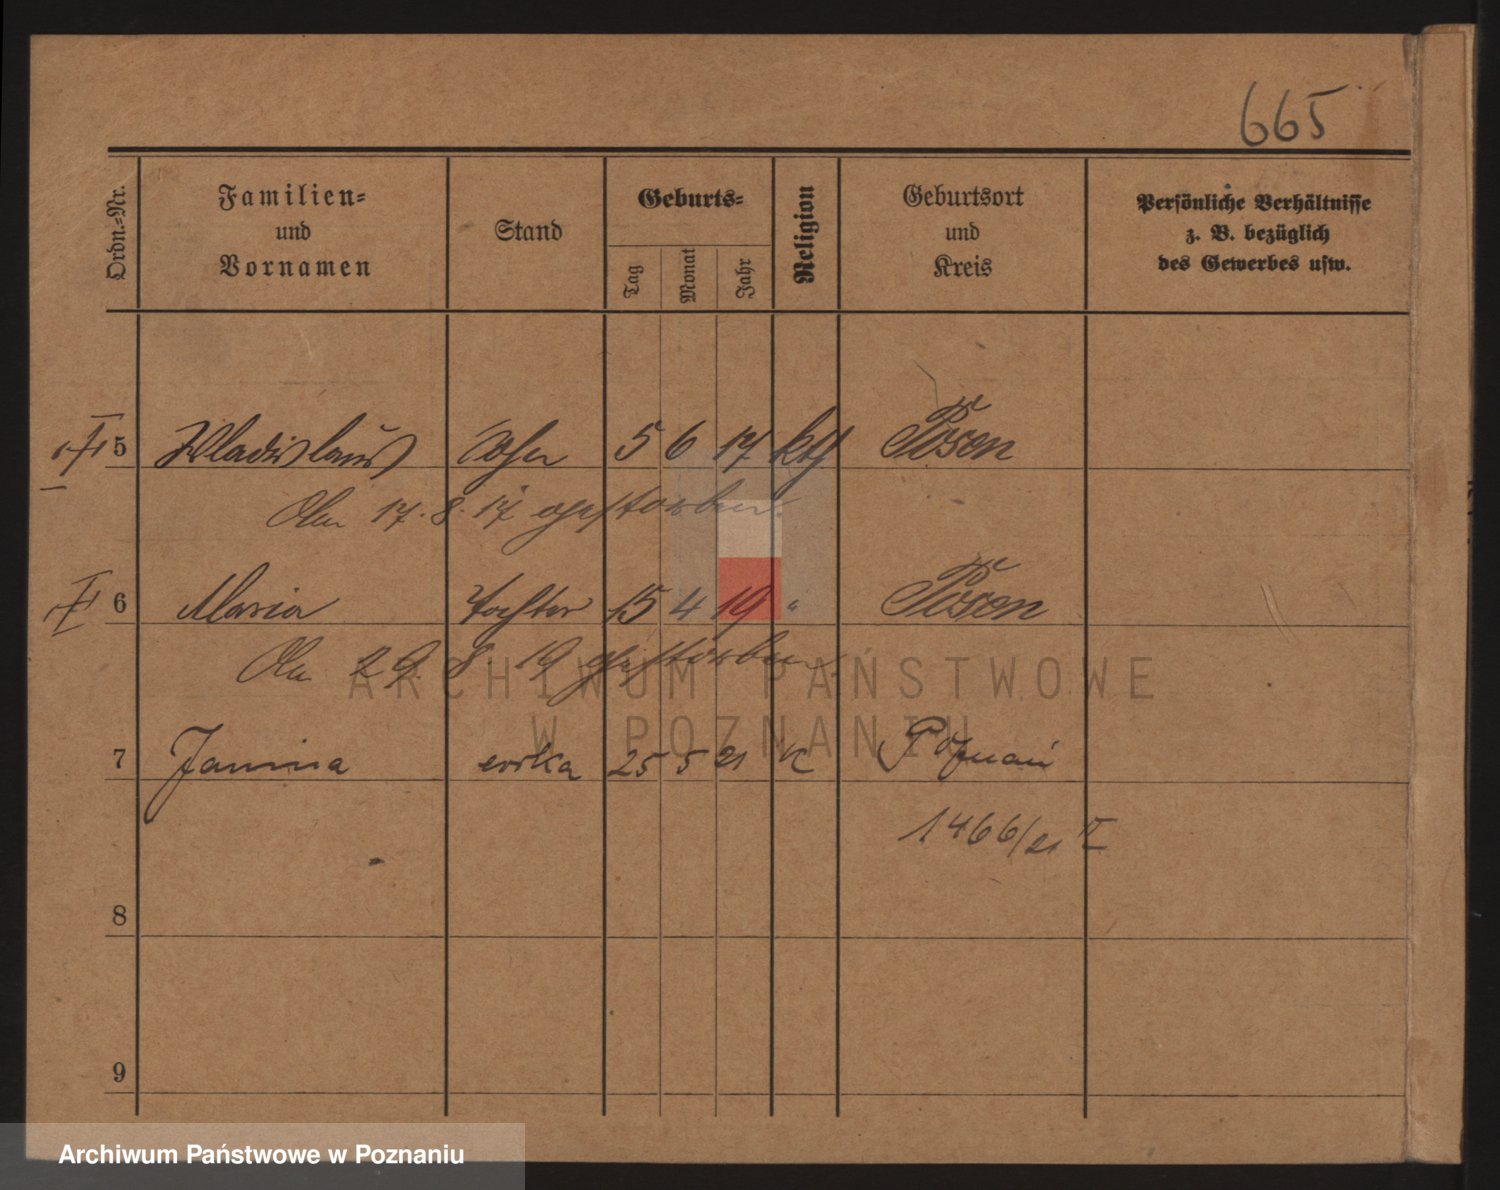 665
Ordn.-Nr.
Familien-
und
Vornamen
Stand
Geburts-
Tag
Monat
Jahr
Religion
Geburtsort
und
Kreis
Persönliche Verhältnisse
z. B. bezüglich
des Gewerbes usw.
5 Wladislaus Sohn 5 6 17 kth Posen
Am 17. 8. 17 gestorben.
6 Maria Tochter 15 4 19 " Posen
Am 29. 8. 19 gestorben.
ARCHIWUM PAŃSTWOWE
W POZNANIU
7 Janina córka 25 5 21 K Poznań
1466/21 II
8
9
Archiwum Państwowe w Poznaniu